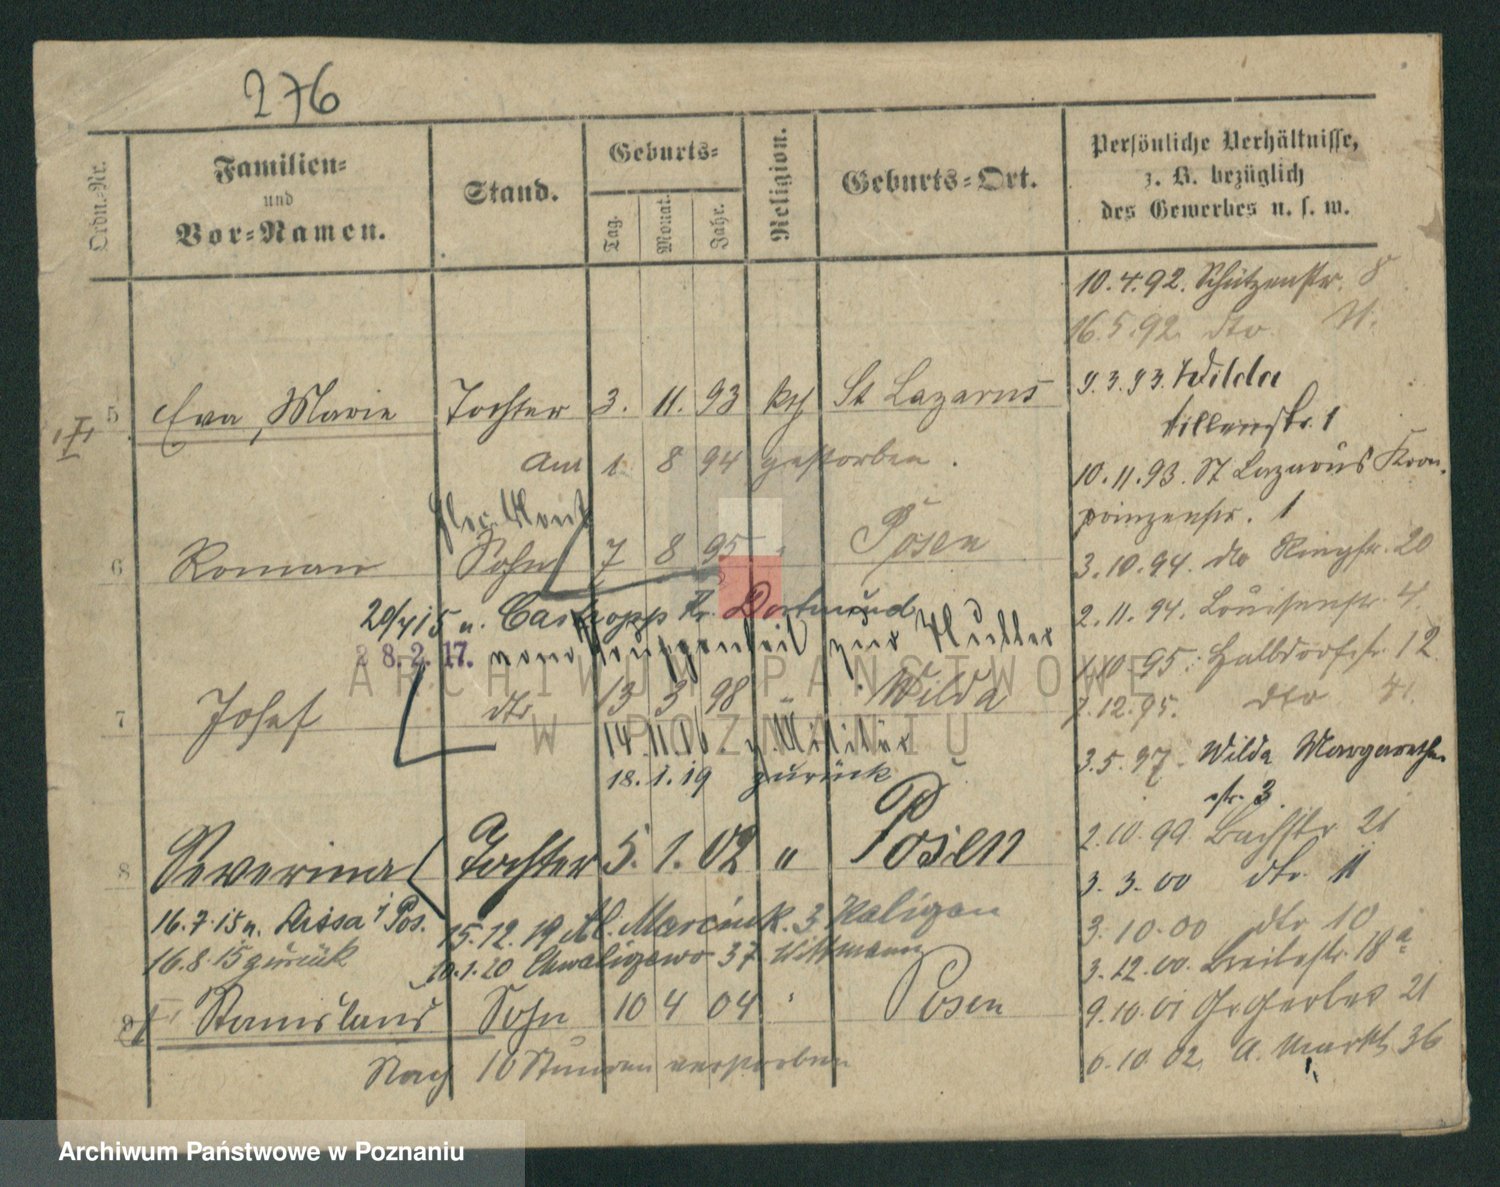 276
Ordn.-Nr.
Familien-
und
Vor-Namen.
Stand.
Geburts-
Tag.
Monat.
Jahr.
Religion.
Geburts-Ort.
Persönliche Verhältnisse,
z. B. bezüglich
des Gewerbes u. s. w.
10.4.92. Schützenstr. 8
16.5.92. dto 11.
9.3.93. Wilda
str. 1
5 Eva, Marie Tochter 3. 11. 93 kth St Lazarus
am 1. 8 94 gestorben.
10.11.93. St Lazarus Kron-
prinzenstr. 1
6 Roman Sohn 7 8 95 " Posen
3.10.94. dto Ringstr. 20
29/4 15 n. Castropp Kr. Dortmund
2.11.94. Louisenstr. 4.
28.2.17. zur
1.10 95. Halbdorfstr. 12
7 Josef dto 13 3 98 " Wilda
7.12.95. dto
14.11.16. z. Militär
18.1.19 zurück
3.5.97. Wilda Margarethen
str. 3.
2.10.99. Bachstr 21
8 Severina Tochter 5. 1. 02 " Posen
3.3.00 dto 11
16.7.15 n. Lissa i Pos.
15.12.19 Marcink. 3 Kaligan
3.10.00 dto 10
16.8.15 zurück
10.1.20 Chwaligowo 37 Wittmann
3.12.00. Breitestr. 18a
9 Stanislaus Sohn 10 4 04 " Posen
9.10.01 Gr Gerber 21
Nach 10 Stunden verstorben
10.02. A. Markt 36
ARCHIWUM PAŃSTWOWE
W POZNANIU
Archiwum Państwowe w Poznaniu